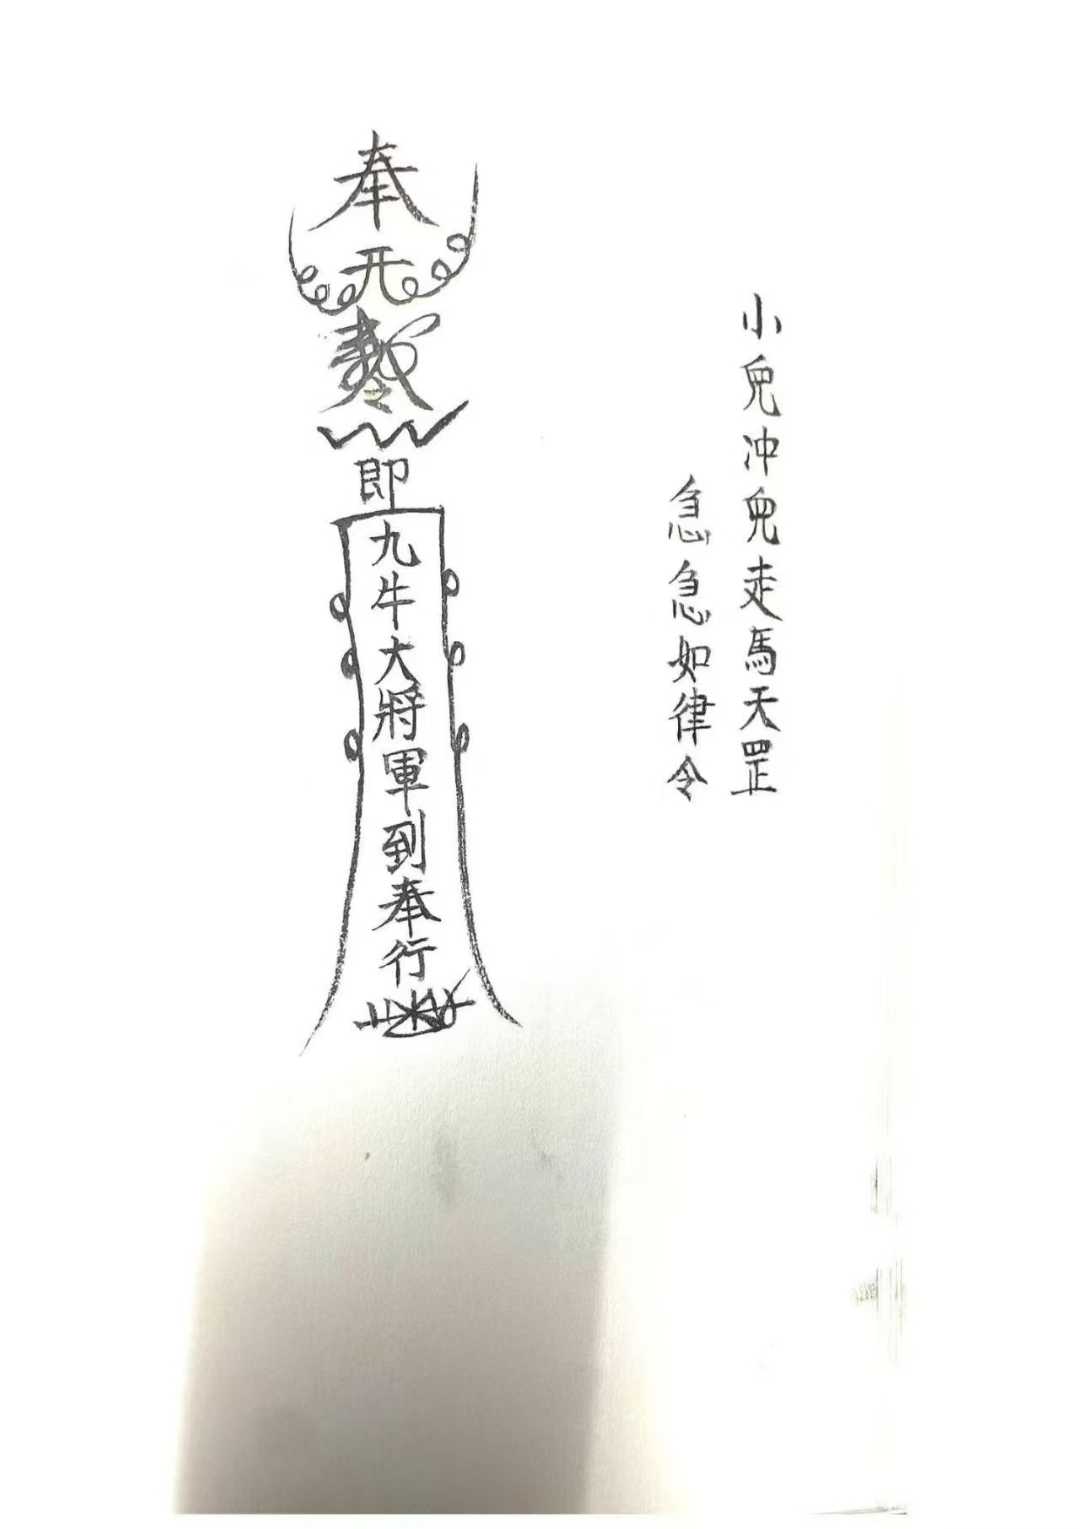 小鬼冲鬼走馬天罡
急急如律令
奉
即
九牛大將軍到奉行